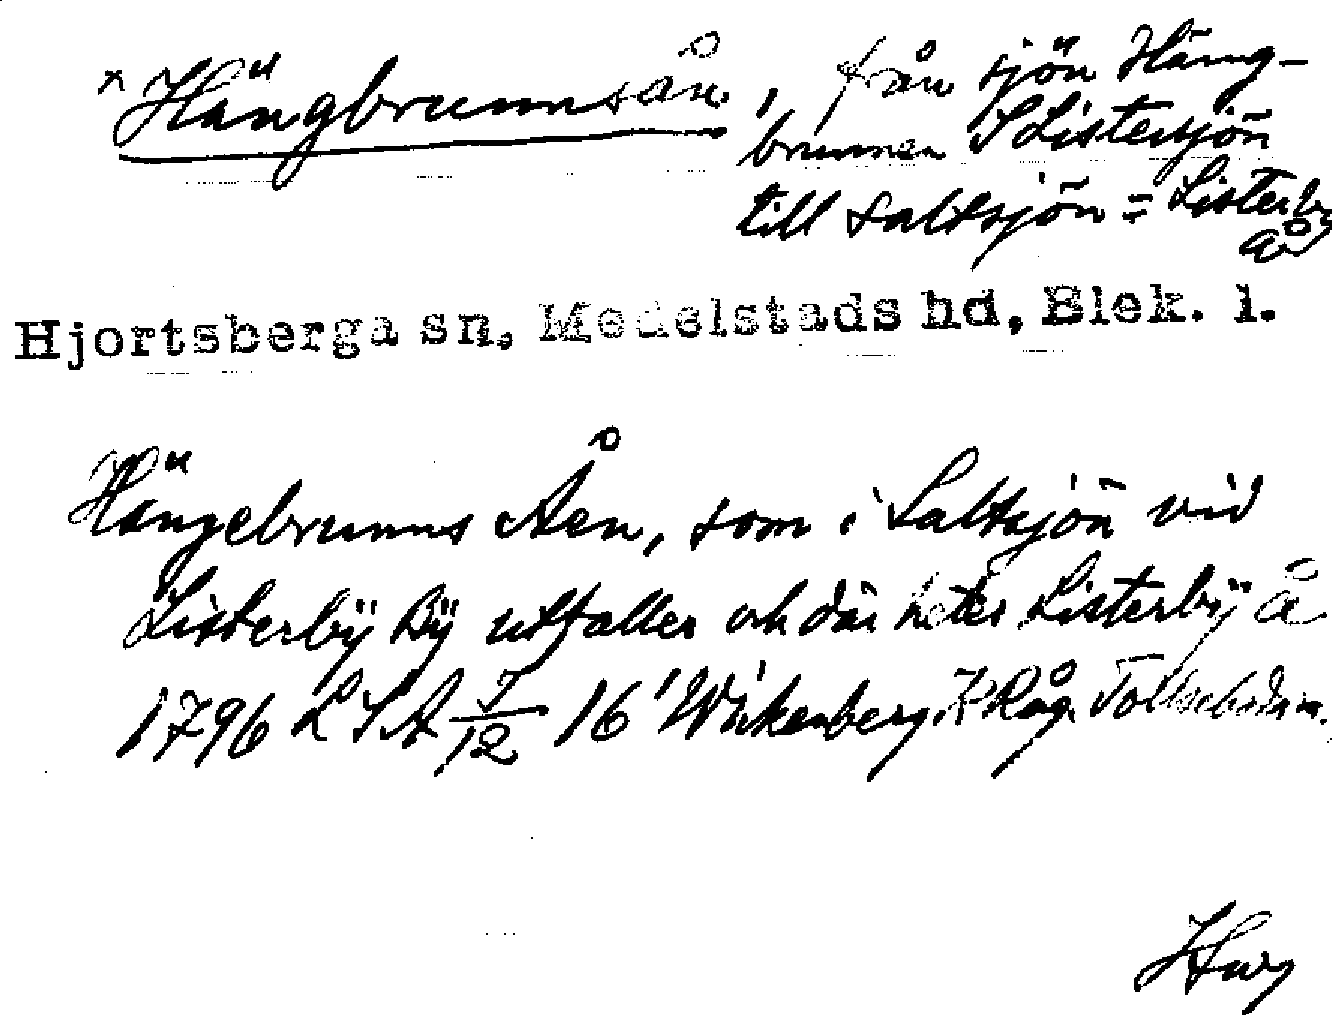 × Hängbrunnsån, från sjön Häng-
brunnen S Listersjön
till saltsjön = Listerby
å
Hjortsberga sn, Medelstads hd, Blek. l.
Hängebrunns Åen, som i Saltsjön vid
Listerbÿ Bÿ utfaller och där hetes Listerbÿ Å
1796 LSA 7/12 16 Wirkenberg KRåg.